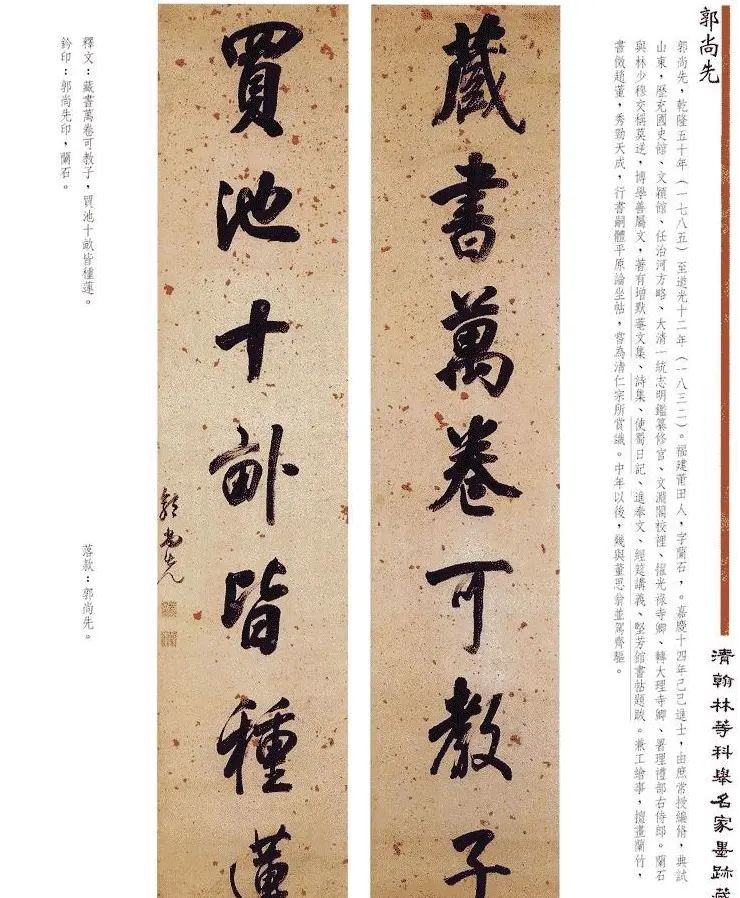 清翰林等科舉名家墨跡藏
郭尚先
郭尚先，乾隆五十年（一七八五）至道光十二年（一八三二）。福建莆田人，字蘭石，。嘉慶十四年己巳進士，由庶常授編脩，典試
山東，歷充國史館、文穎館、任治河方略、大清一統志明鑑纂修官、文淵閣校裡、擢光祿寺卿、轉大理寺卿、署理禮部右侍郎。蘭石
與林少穆交稱莫逆，博學善屬文，著有增默菴文集、詩集、使蜀日記、進奉文、經筵講義、堅芳館書帖題跋。兼工繪事，擅畫蘭竹，
書倣趙董，秀勁天成，行書嗣體平原論坐帖，嘗為清仁宗所賞識。中年以後，幾與董思翁並駕齊驅。
藏書萬卷可教子
買池十畝皆種蓮
郭尚先
釋文：藏書萬卷可教子，買池十畝皆種蓮。
落款：郭尚先。
鈐印：郭尚先印，蘭石。